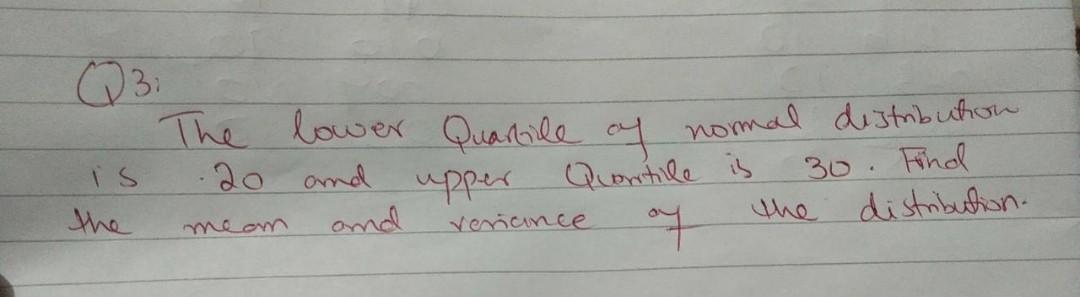 Q3:
The lower Quartile of normal distribution
is 20 and upper Quartile is 30. Find
the mean and variance of the distribution.